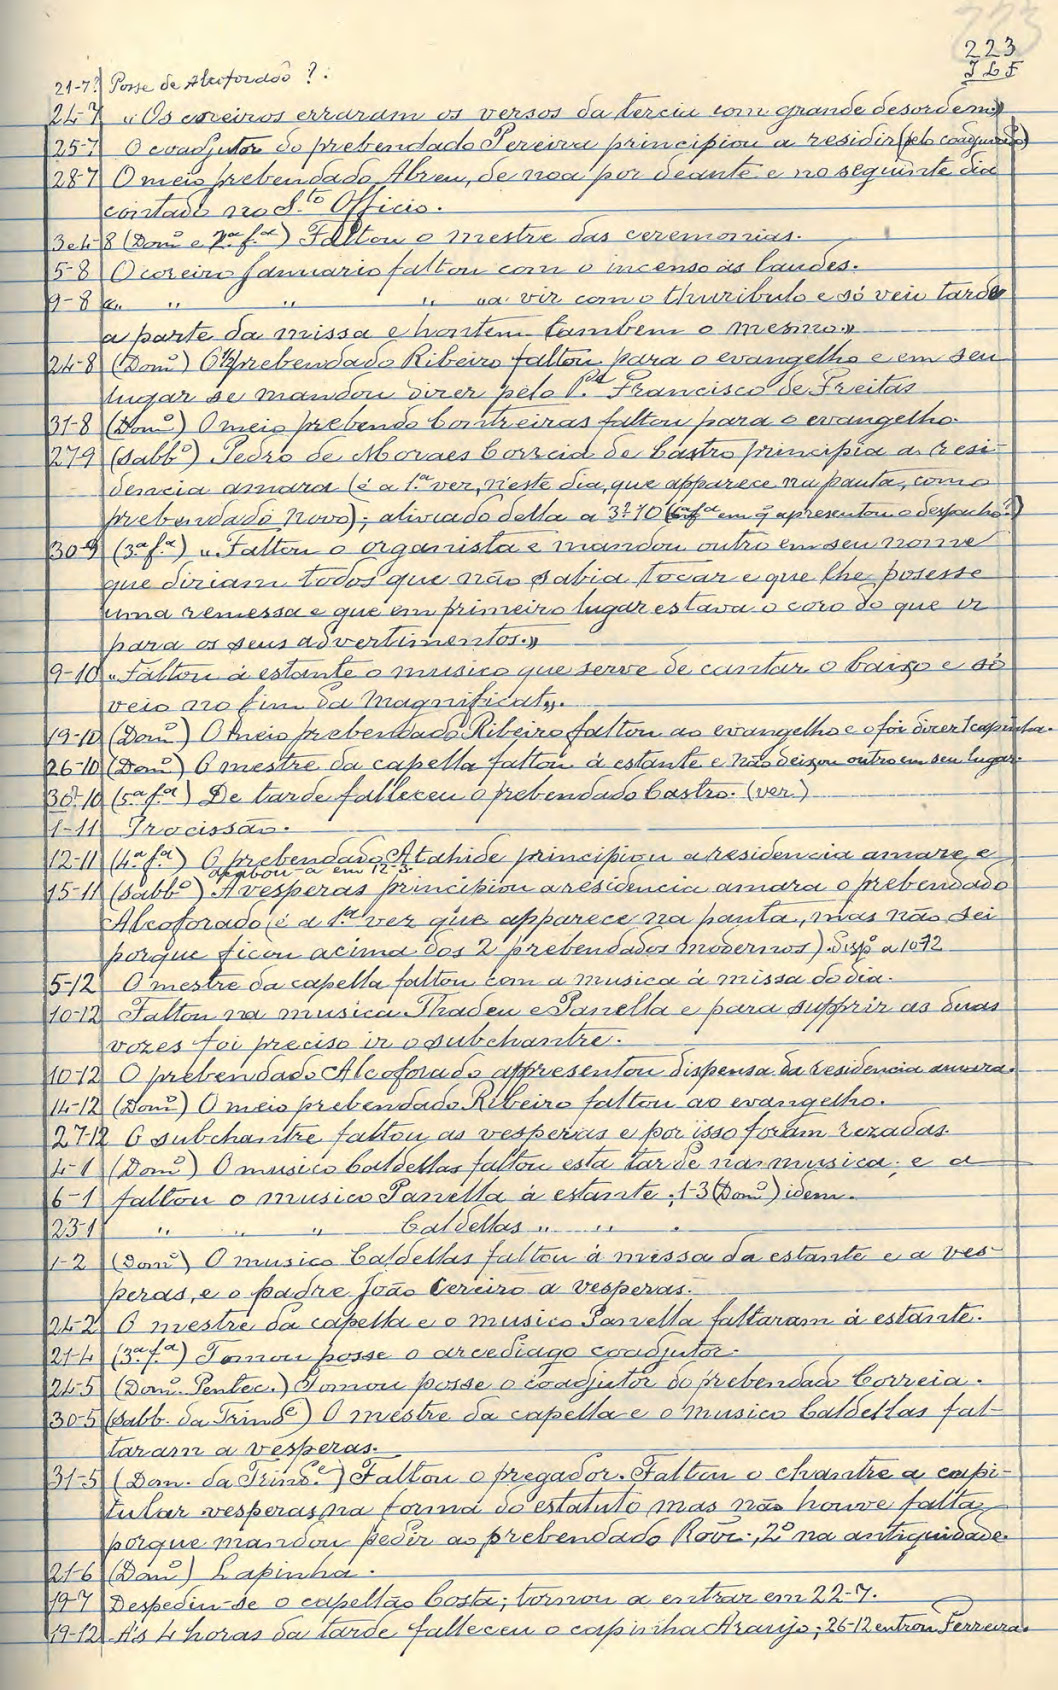 223
J L F
21-7? Posse de Alcoforado ?.
24-7 "Os coreiros erraram os versos da tercia com grande desordem"
25-7 O coadjutor do prebendado Pereira principiou a residir (pelo coadjuvado)
28-7 O meio prebendado Abreu, de noa por deante e no seguinte dia
contado no S.to Officio.
3e4-8 (Dom.o e 2.a f.a) Faltou o mestre das ceremonias.
5-8 O coreiro Januario faltou com o incenso ás laudes.
9-8 " " " " "a vir com o thuribulo e só veiu tarde
a parte da missa e hontem tambem o mesmo"
24-8 (Dom.o) O 1/2 prebendado Ribeiro faltou para o evangelho e em seu
lugar se mandou dizer pelo P.e Francisco de Freitas
31-8 (Dom.o) O meio prebendo Contreiras faltou para o evangelho.
27-9 (Sabb.o) Pedro de Moraes Correia de Castro principia a resi-
dencia amara (é a 1.a vez, n'este dia, que apparece na pauta, como
prebendado novo); aliviado della a 3-10 (6.a f.a em q apresentou o despacho?)
30-9 (3.a f.a) "Faltou o organista e mandou outro em seu nome
que diriam todos que não sabia tocar e que lhe posesse
uma remessa e que em primeiro lugar estava o coro do que ir
para os seus advertimentos."
9-10 "Faltou á estante o musico que serve de cantar o baixo e só
veio no fim da Magnificat".
19-10 (Dom.o) O meio prebendado Ribeiro faltou ao evangelho e o foi dizer 1 capinha.
26-10 (Dom.o) O mestre da capella faltou á estante e não deixou outro em seu lugar.
30-10 (5.a f.a) De tarde falleceu o prebendado Castro. (ver)
1-11 Procissão.
12-11 (4.a f.a) O prebendado Atahide principiou a residencia amare, e
acabou-a em 12-3.
15-11 (Sabb.o) A vesperas principiou a residencia amara o prebendado
Alcoforado (é a 1.a vez que apparece na pauta, mas não sei
porque ficou acima dos 2 prebendados modernos) Disp.o a 10-12
5-12 O mestre da capella faltou com a musica á missa do dia.
10-12 Faltou na musica Thadeu e Panella e para supprir as duas
vozes foi preciso ir o subchantre.
10-12 O prebendado Alcoforado appresentou dispensa da residencia amara.
14-12 (Dom.o) O meio prebendado Ribeiro faltou ao evangelho.
27-12 O subchantre faltou as vesperas e por isso foram rezadas.
4-1 (Dom.o) O musico Caldellas faltou esta tarde na musica; e a
6-1 faltou o musico Panella á estante; 1-3 (Dom.o) idem.
23-1 " " " Caldellas " " .
1-2 (Dom.o) O musico Caldellas faltou á missa da estante e a ves-
peras, e o padre João Cereiro a vesperas.
24-2 O mestre da capella e o musico Panella faltaram á estante.
21-4 (3.a f.a) Tomou posse o arcediago coadjutor.
24-5 (Dom.o Pentec.) Tomou posse o coadjutor do prebendado Correia.
30-5 (Sabb. da Trind.e) O mestre da capella e o musico Caldellas fal-
taram a vesperas.
31-5 (Dom. da Trind.e) Faltou o pregador. Faltou o chantre a capi-
tular vesperas, na forma do estatuto mas não houve falta,
porque mandou pedir ao prebendado Rovz.; 2.o na antiguidade.
21-6 (Dom.o) Lapinha.
19-7 Despediu-se o capellão Costa; tornou a entrar em 22-7.
19-12 A's 4 horas da tarde falleceu o capinha Araujo; 26-12 entrou Ferreira.